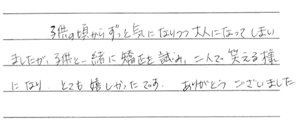 子供の頃からずっと気になりつつ大人になってしまい
ましたが、子供と一緒に矯正を試み、二人で笑える様
になり、とても嬉しかったです。ありがとうございました